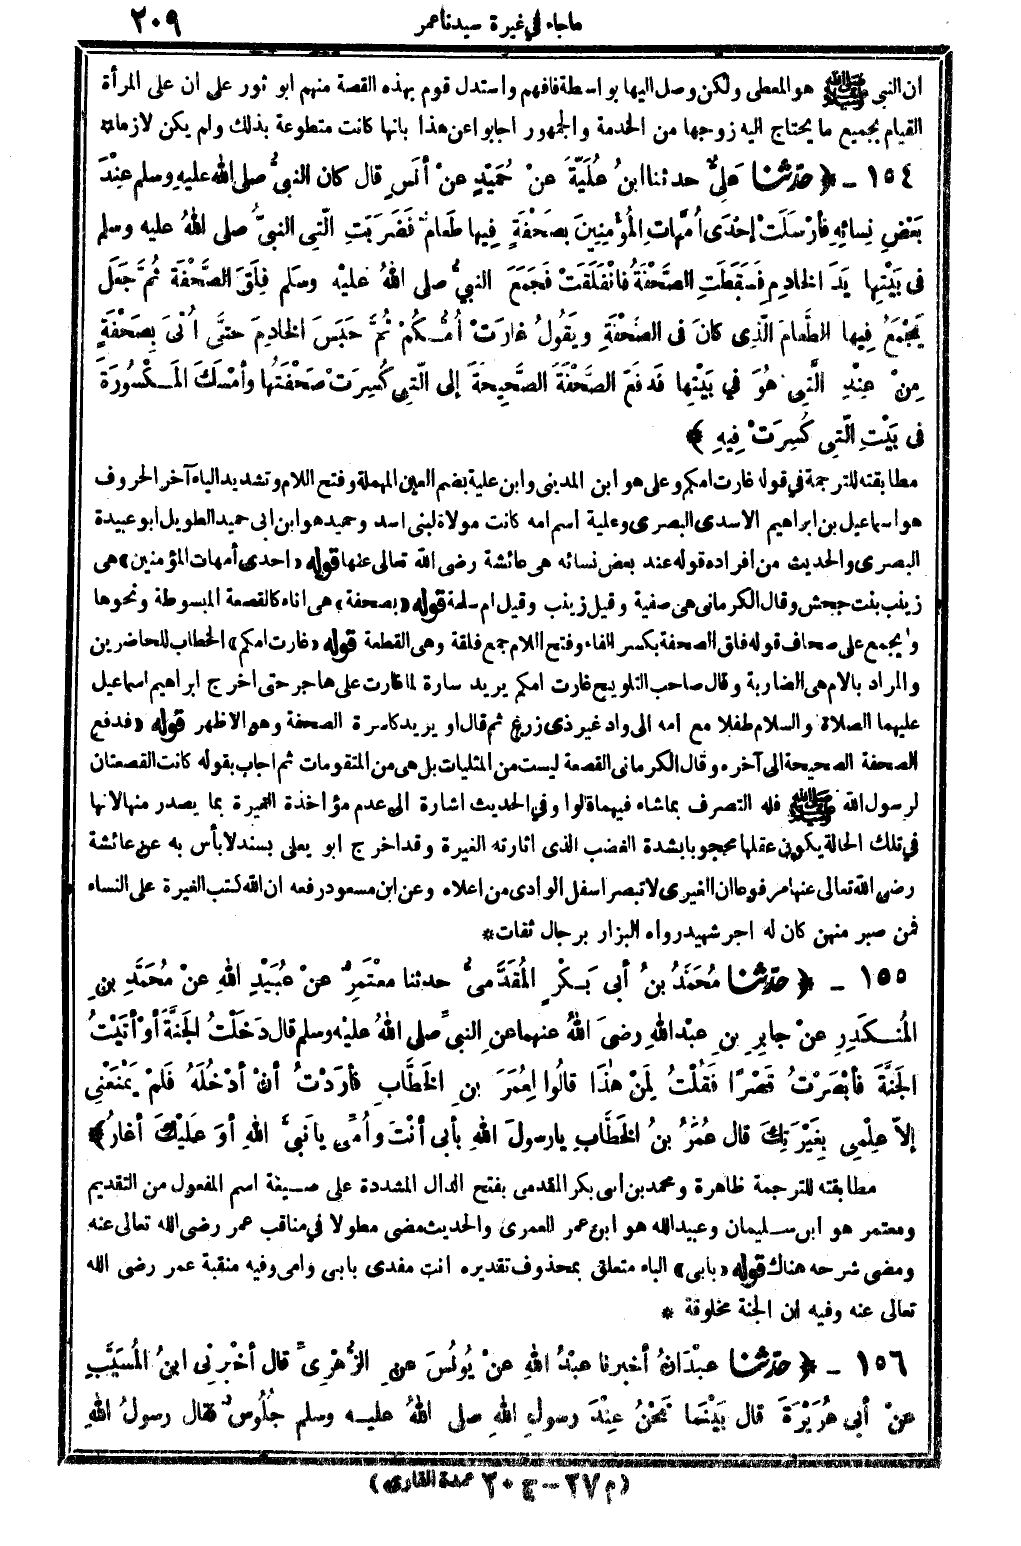 ماجاء في غيرة سيدنا عمر ٢٠٩
ان النبي ﷺ هو المعطى ولكن وصل اليها بواسطة فافهم واستدل قوم بهذه القصة منهم ابو ثور على ان على المرأة
القيام بجميع ما يحتاج اليه زوجها من الخدمة والجمهور اجابوا عن هذا بانها كانت متطوعة بذلك ولم يكن لازما *
١٥٤ - ﴿ حَدَّثَنَا عَلِيٌّ حدثنا ابنُ عُلَيَّةَ عَنْ حُمَيْدٍ عنْ أنَسٍ قال كان النبيُّ صلى الله عليه وسلم عِنْدَ
بَعْضِ نِسائِهِ فأرْسَلَتْ إحْدَى أُمَّهاتِ المُؤْمِنِينَ بِصَحْفَةٍ فِيها طَعَامٌ فَضَرَبَتِ الَّتِي النبيُّ صلى اللهُ عليه وسلم
فى بَيْتِها يَدَ الخادِمِ فَسَقَطَتِ الصَّحْفَةُ فانْفَلَقَتْ فَجَمَعَ النبيُّ صلى اللهُ عليْهِ وسَلم فِلَقَ الصَّحْفَةِ ثُمَّ جَعَلَ
يَجْمَعُ فِيها الطَّعامَ الَّذِى كانَ فى الصَّحْفَةِ ويَقُولُ غارَتْ أُمُّكُمْ ثُمَّ حَبَسَ الخادِمَ حتَّى أُتِىَ بِصَحْفَةٍ
مِنْ عِنْدِ الَّتِي هُوَ في بَيْتِها فَدَفَعَ الصَّحْفَةَ الصَّحِيحَةَ إلى الَّتِي كُسِرَتْ صَحْفَتُها وأمْسَكَ المَكْسُورَةَ
فى بَيْتِ الَّتِي كُسِرَتْ فِيهِ ﴾
مطابقته للترجمة في قوله غارت امكم وعلى هو ابن المدينى وابن علية بضم العين المهملة وفتح اللام وتشديد الياء آخر الحروف
هو اسماعيل بن ابراهيم الاسدى البصرى وعلية اسم امه كانت مولاة لبنى اسد وحميد هو ابن ابى حميد الطويل ابو عبيدة
البصرى والحديث من أفراده قوله عند بعض نسائه هى عائشة رضى الله تعالى عنها قوله «احدى أمهات المؤمنين» هى
زينب بنت جحش وقال الكرمانى هى صفية وقيل زينب وقيل ام سلمة قوله «بصحفة» هى اناء كالقصعة المبسوطة ونحوها
ويجمع على صحاف قوله فلق الصحفة بكسر الفاء وفتح اللام جمع فلقة وهى القطعة قوله «غارت امكم» الخطاب للحاضرين
والمراد بالام هى الضاربة وقال صاحب التلويح غارت امكم يريد سارة لما غارت على هاجر حتى اخرج ابراهيم اسماعيل
عليهما الصلاة والسلام طفلا مع امه الى واد غير ذى زرع ثم قال او يريد كاسرة الصحفة وهو الاظهر قوله «فدفع
الصحفة الصحيحة الى آخره» وقال الكرمانى القصعة ليست من المثليات بل هى من المتقومات ثم اجاب بقوله كانت القصعتان
لرسول الله ﷺ فله التصرف بما شاء فيهما قالوا وفي الحديث اشارة الى عدم مؤاخذة الغيرة بما يصدر منها لانها
في تلك الحالة يكون عقلها محجوبا بشدة الغضب الذى اثارته الغيرة وقد اخرج ابو يعلى بسند لا بأس به عن عائشة
رضى الله تعالى عنها مرفوعا ان الغيرى لا تبصر اسفل الوادى من اعلاه وعن ابن مسعود رفعه ان الله كتب الغيرة على النساء
فمن صبر منهن كان له اجر شهيد رواه البزار برجال ثقات *
١٥٥ - ﴿ حَدَّثَنَا مُحَمَّدُ بنُ أبى بَكْرٍ المُقَدَّمِىُّ حدثنا معْتَمِرٌ عنْ عُبَيْدِ اللهِ عنْ مُحَمَّدِ بنِ
المُنْكَدِرِ عنْ جابِرِ بنِ عبْدِ اللهِ رضىَ اللهُ عنهما عنِ النبيِّ صلى اللهُ عليْه وسلم قال دَخَلْتُ الجَنَّةَ أوْ أتَيْتُ
الجَنَّةَ فأبْصَرْتُ قَصْرًا فَقُلْتُ لِمَنْ هٰذَا قالُوا لِعُمَرَ بنِ الخَطَّابِ فأرَدْتُ أنْ أدْخُلَهُ فَلَمْ يَمْنَعْنِى
إلاّ عِلْمِى بِغَيْرَتِكَ قال عُمَرُ بنُ الخَطَّابِ يا رسولَ اللهِ بأبى أنْتَ وأُمِّى يا نَبيَّ اللهِ أوَ عَلَيْكَ أغارُ ﴾
مطابقته للترجمة ظاهرة ومحمد بن ابى بكر المقدمى بفتح الدال المشددة على صيغة اسم المفعول من التقديم
ومعتمر هو ابن سليمان وعبيد الله هو ابن عمر العمرى والحديث مضى مطولا في مناقب عمر رضى الله تعالى عنه
ومضى شرحه هناك قوله «بابى» الباء متعلق بمحذوف تقديره انت مفدى بابى وامى وفيه منقبة عمر رضى الله
تعالى عنه وفيه ان الجنة مخلوقة *
١٥٦ - ﴿ حَدَّثَنَا عبْدَانُ أخبرنا عبْدُ اللهِ عنْ يُونُسَ عنِ الزُّهْرِىِّ قال أخْبرنِى ابنُ المُسَيَّبِ
عنْ أبى هُرَيْرَةَ قال بَيْنَما نَحْنُ عِنْدَ رسولِ اللهِ صلى اللهُ عليه وسلم جُلُوسٌ فقال رسولُ اللهِ
(م ٢٧ - ج ٢٠ عمدة القارى)